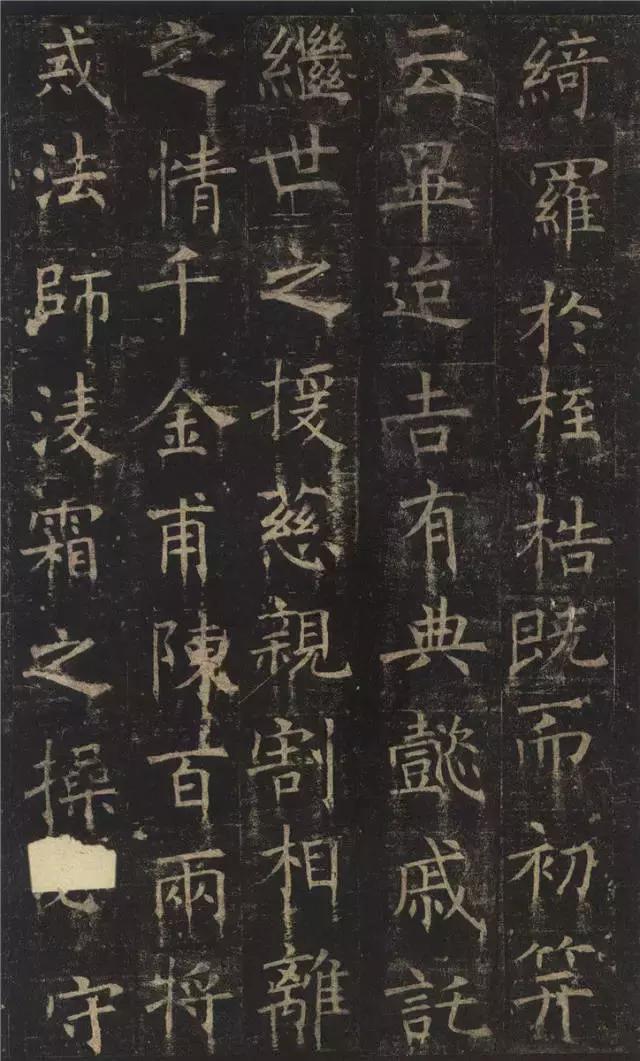 綺羅於桎梏既而初筓
云畢迨吉有典懿戚託
繼世之援慈親割相離
之情千金甫陳百兩將
戒法師淩霜之操守